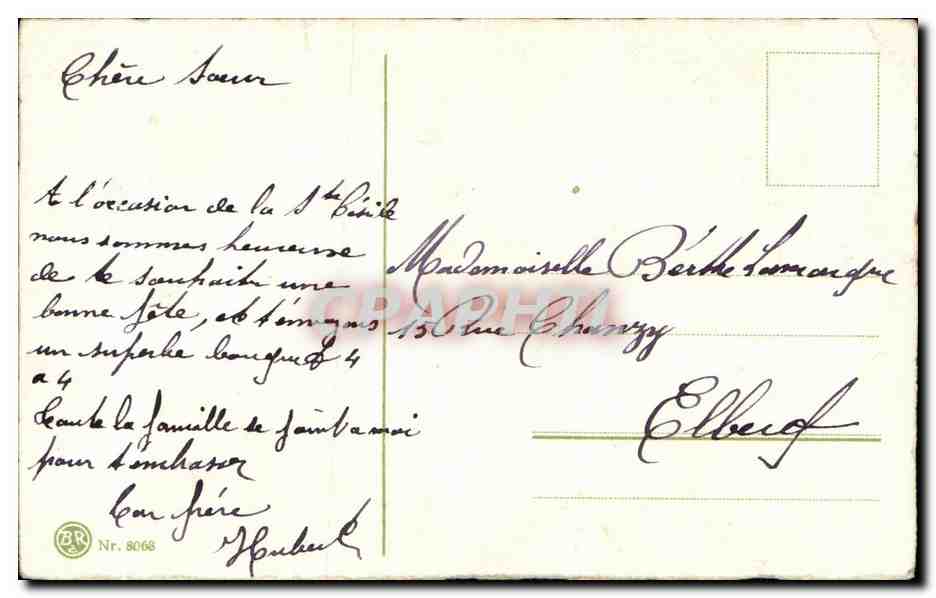 Chère Sœur
A l'occasion de la Ste Cécile
nous sommes heureuse
de te souhaiter une
bonne fête, et t'envoyons
un superbe bouquet 4
a 4
toute la famille se joint a moi
pour t'embrasser
ton frére
Hubert
BR
Nr. 8068
Mademoiselle Bérthe Lamarque
15 Rue Chanzy
Elbeuf
CPAPHIL